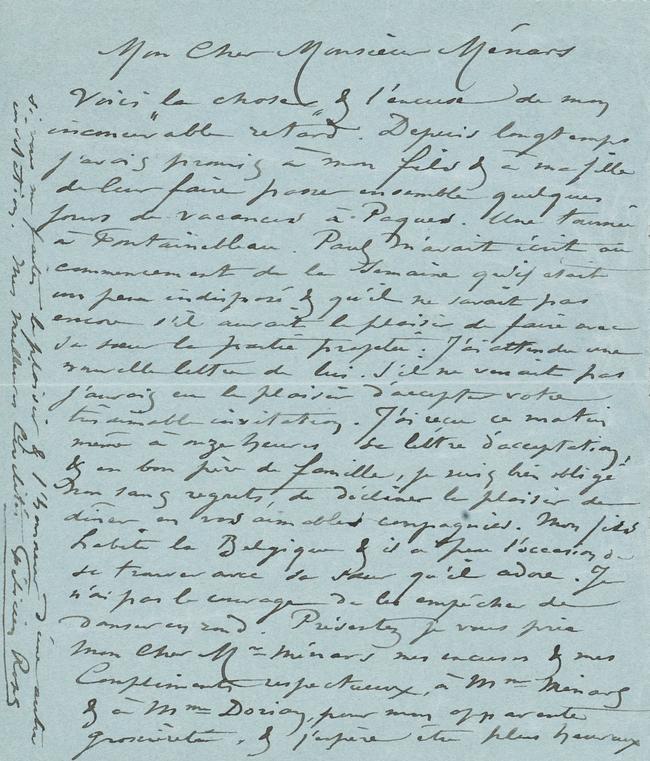 Mon Cher Monsieur Ménars
Voici la chose, & l'excuse de mon
inconcevable retard. Depuis longtemps
j'avais promis à mon fils & à ma fille
de leur faire passer ensemble quelques
jours de vacances à Paques. Une tournée
à Fontainebleau. Paul m'avait écrit au
commencement de la Semaine qu'il était
un peu indisposé & qu'il ne savait pas
encore s'il aurait le plaisir de faire avec
sa sœur la partie projetée. J'ai attendu une
nouvelle lettre de lui. S'il ne venait pas
j'aurais eu le plaisir d'accepter votre
très aimable invitation. J'ai reçu ce matin
même à onze heures sa lettre d'acceptation,
& en bon père de famille, je suis bien obligé
non sans regrets de décliner le plaisir de
dîner en vos aimables compagnies. Mon fils
habite la Belgique & il a peu l'occasion de
se trouver avec sa sœur qu'il adore. Je
n'ai pas le courage de les empêcher de
danser en rond. Présentez je vous prie
mon Cher Mr Ménars mes excuses & mes
Compliments respectueux, à Mme Ménars
& à Mme Dorian, pour mon apparente
grossièreté, & j'espère être plus heureux
si vous me faites le plaisir & l'honneur d'une autre
invitation. Mes meilleures Cordialités Félicien Rops